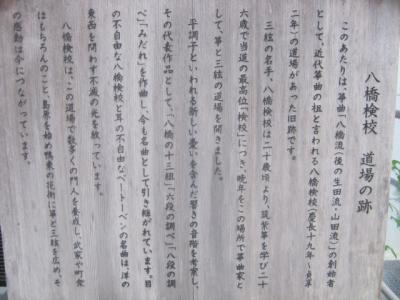 八橋検校 道場の跡
このあたりは、箏曲「八橋流(後の生田流・山田流)」の創始者
として、近代箏曲の祖と言われる八橋検校(慶長十九年~貞享
二年)の道場があった旧跡です。
三絃の名手、八橋検校は二十歳頃より、筑紫箏を学び二十
六歳で当道の最高位「検校」につき、晩年をこの場所で箏曲家と
して、箏と三絃の道場を開きました。
平調子といわれる新しい憂いを含んだ響きの音階を考案し、
その代表作品として、「八橋の十三組」「六段の調べ」「八段の調
べ」「みだれ」を作曲し、今も名曲として引き継がれています。目
の不自由な八橋検校と耳の不自由なベートーベンの名曲は、洋の
東西を問わず不滅の光を放っています。
八橋検校は、この道場で数多くの門人を養成し、武家や町衆
はもちろんのこと、島原を始め鴨東の花街に箏と三絃を広め、そ
の感動は今につながっています。